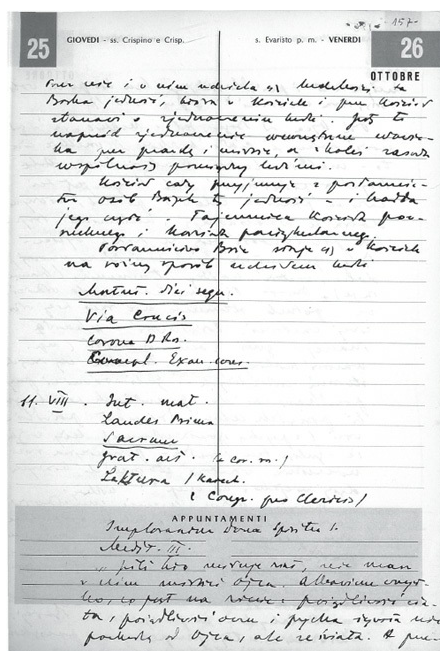 - 157 -
25 GIOVEDI - ss. Crispino e Crisp.
s. Evaristo p. m. - VENERDI 26
OTTOBRE
Boska jedność, która w Kościele i przez Kościół
stanowi o zjednoczeniu ludzi. Jest to
naprzód zjednoczenie wewnętrzne
przez prawdę i miłość, a z kolei zasada
wspólnoty pomiędzy ludźmi.
Kościół cały przyjmuje z
osób Bożych tę jedność - i każda
jego część. Tajemnica Kościoła
i Kościoła partykularnego.
Posłannictwo Boże staje się w Kościele
na różny sposób udziałem ludzi
Matut. diei sequ.
Via Crucis
Corona B Ros.
Compl. Exam. consc.
11. VIII. Int. mat.
Laudes Prima
Sacrum
grat. act.
Lektura
(Congr. pro Clericis)
APPUNTAMENTI
Implorandum dona Spiritus S.
Medit. III.
"Jeśli kto miłuje świat, nie masz
w nim miłości Ojca. Albowiem wszyst-
ko, co jest na świecie: pożądliwość cia-
ła, pożądliwość oczu i pycha żywota nie
pochodzą od Ojca, ale ze świata. A